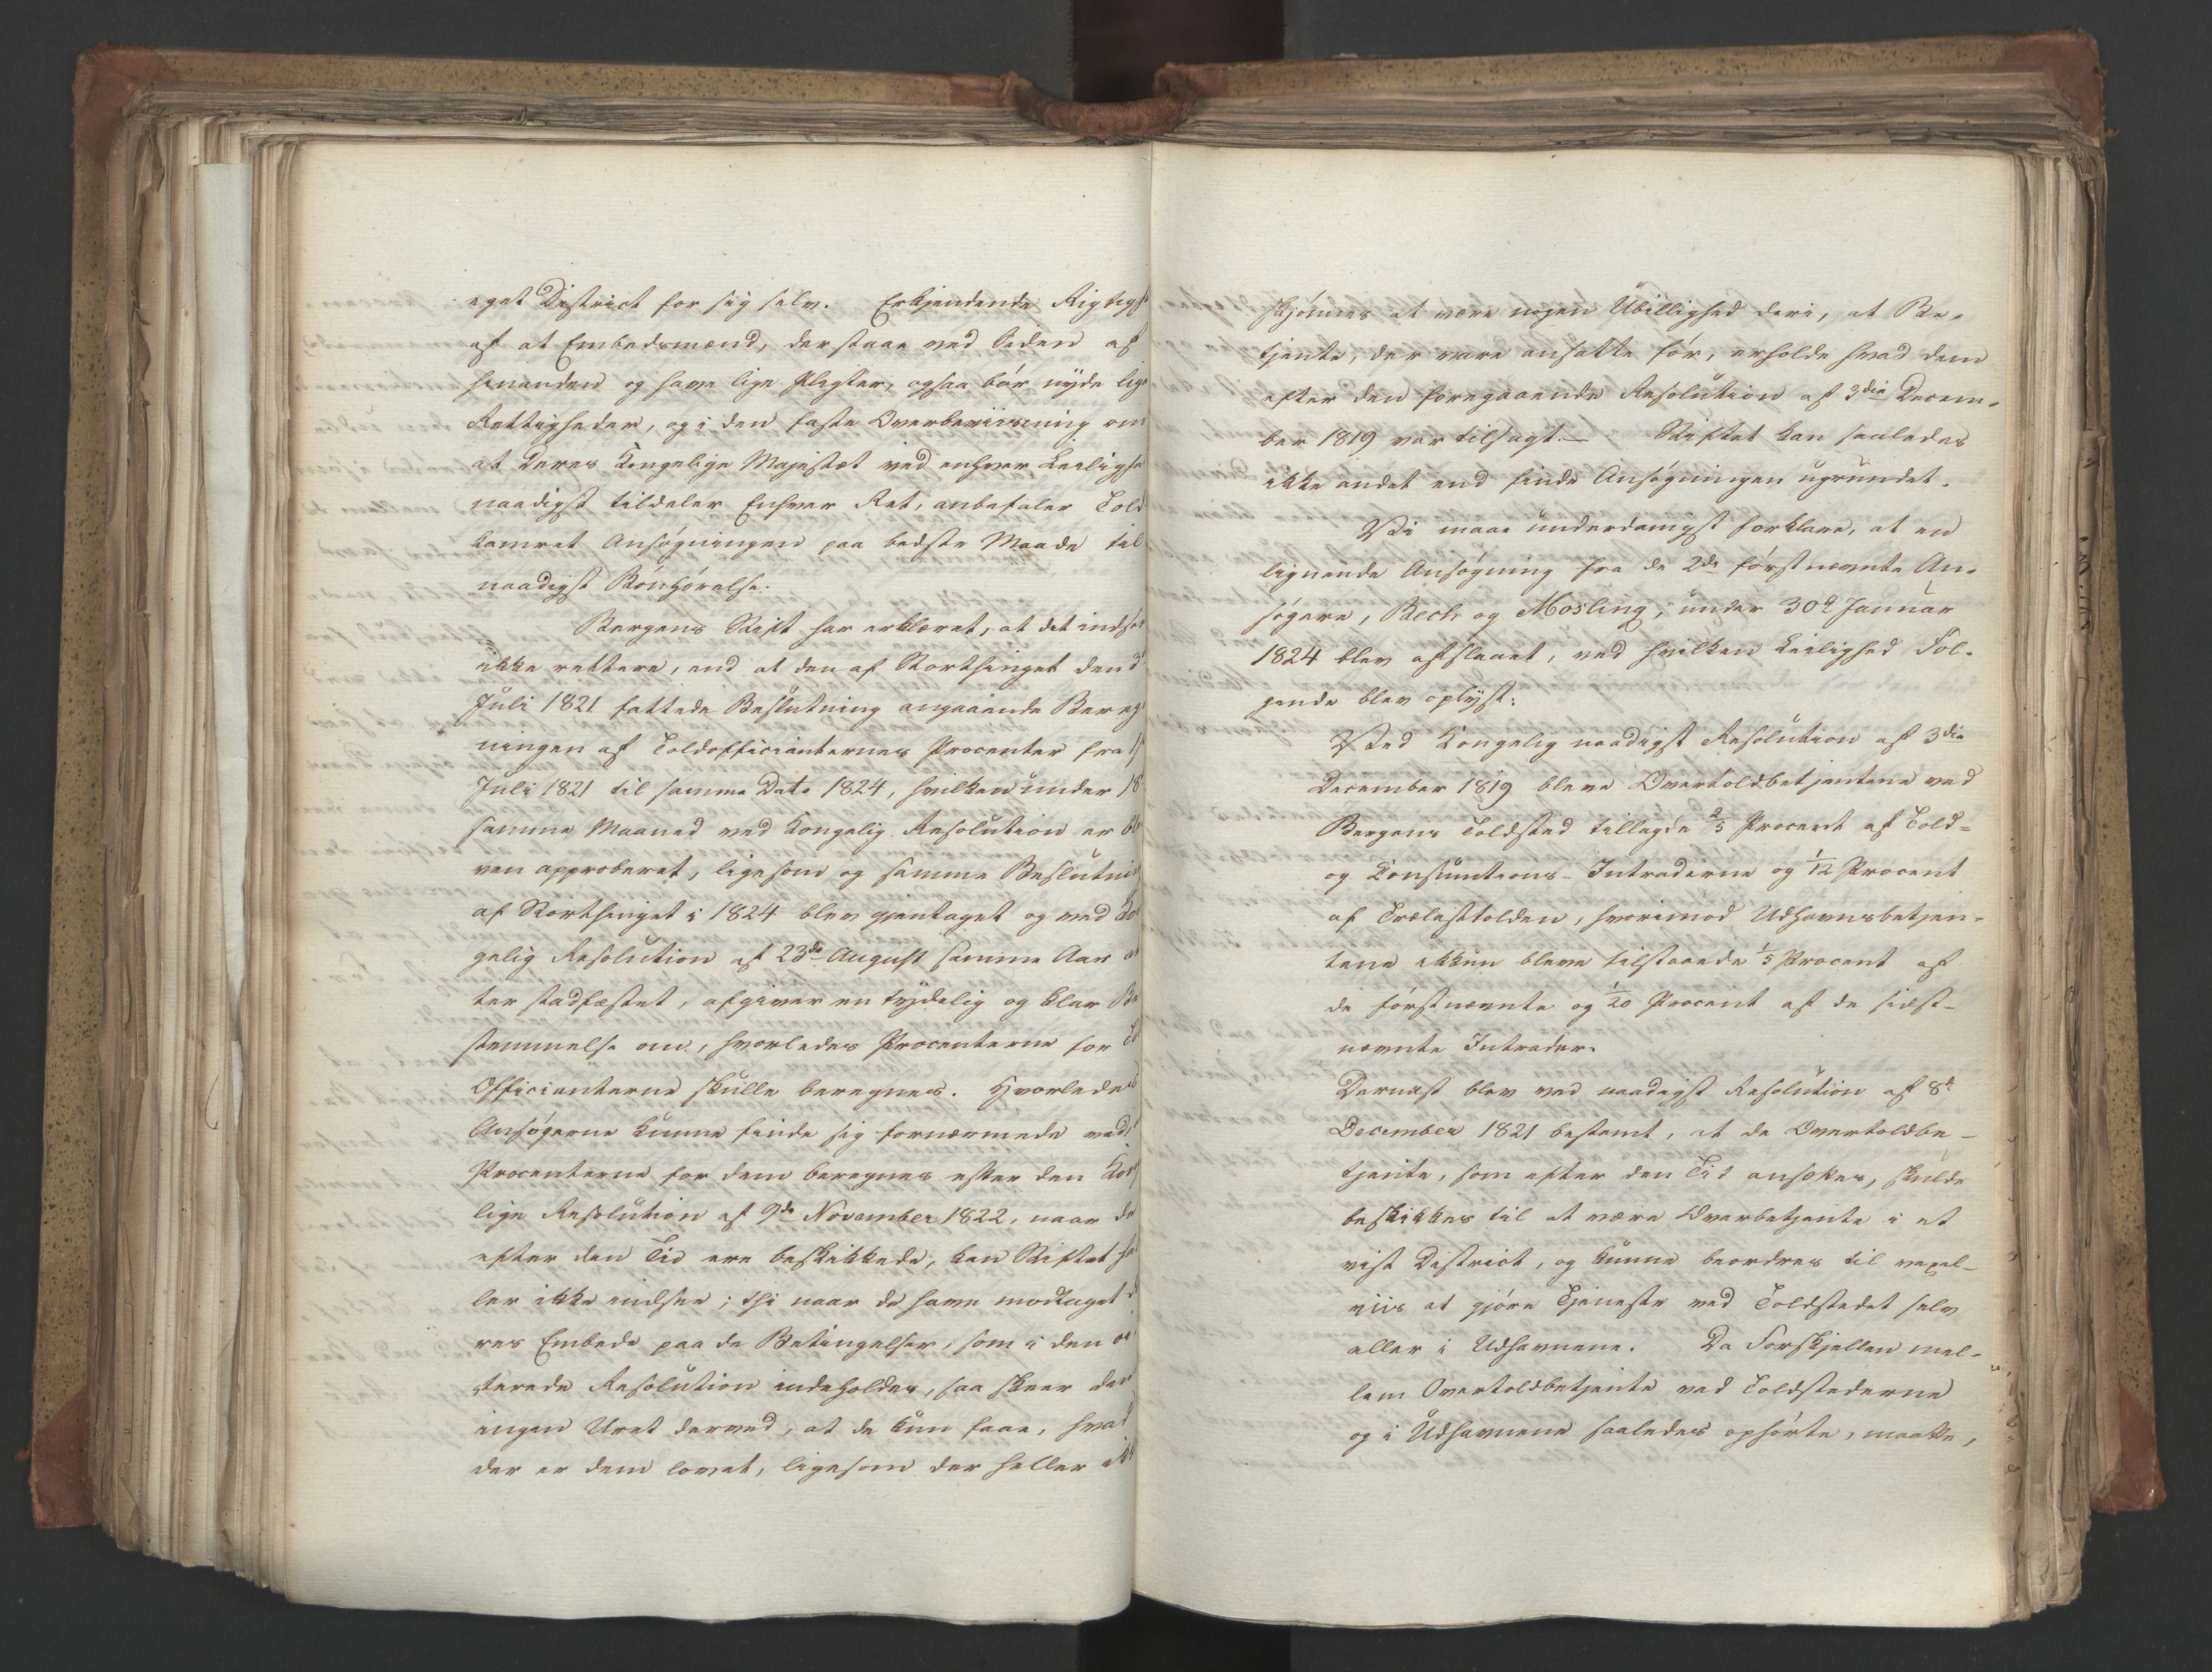 eget District for sig selv. Erkjendende Rigtigh
af at Embedsmænd, der staae ved Siden af
hinanden og have lige Pligter, ogsaa bør nyde lige
Rettigheder, og i den faste Overbeviisning om
at Deres Kongelige Majestæt ved enhver Leiligh
naadigst tildeler Enhver Ret, anbefaler Told
kamret Ansøgningen paa bedste Maade til
naadigst Bønhørelse.
Bergens Stift har erklæret, at det indsee
ikke rettere, end at den af Storthinget den 3
Juli 1821 fattede Beslutning angaaende Bereg
ningen af Toldofficianternes Procenter fra 1
Juli 1821 til samme Dato 1824, hvilken under 18
samme Maaned ved Kongelig Resolution er ble
ven approberet, ligesom og samme Beslutni
af Storthinget i 1824 blev gjentaget og ved Kon
gelig Resolution af 23de August samme Aar at
ter stadfæstet, afgiver en tydelig og klar Be
stemmelse om, hvorledes Procenterne for To
Officianterne skulle beregnes. Hvorledes
Ansøgerne kunne finde sig fornærmede ved
Procenterne for dem beregnes efter den Kong
lige Resolution af 9de November 1822, naar de
efter den Tid ere beskikkede, kan Stiftet hel
ler ikke indsee; thi naar de have modtaget de
res Embede paa de Betingelser, som i den ci
terede Resolution indeholdes, saa skeer der
ingen Uret derved, at de kun faae, hvad
der er dem lovet, ligesom der heller ikk
skjønnes at være nogen Ubillighed deri, at Be-
tjente, der vare ansatte før, erholde hvad dem
efter den foregaaende Resolution af 3die Decem-
ber 1819 var tilsagt. — Stiftet kan saaledes
ikke andet end finde Ansøgningen ugrundet.
Vi maae underdanigst forklare, at en
lignende Ansøgning fra de 2de førstnævnte An-
søgere, Bech og Mosling, under 30te Januar
1824 blev afslaaet, ved hvilken Leilighed Føl-
gende blev oplyst:
Ved Kongelig naadigst Resolution af 3die
December 1819 bleve Overtoldbetjentene ved
Bergens Toldsted tillagde 2/5 Procent af Told-
og Consumtions-Intraderne og 1/12 Procent
af Trælasttolden, hvorimod Udhavnsbetjen-
tene ikkun bleve tilstaaede 1/5 Procent af
de førstnævnte og 1/20 Procent af de sidst-
nævnte Intrader.
Dernæst blev ved naadigst Resolution af 8de
December 1821 bestemt, at de Overtoldbe-
tjente, som efter den Tid ansættes, skulde
beskikkes til at være Overbetjente i et
vist District, og kunne beordres til vexel-
viis at gjøre Tjeneste ved Toldstedet selv
eller i Udhavnene. Da Forskjellen mel-
lem Overtoldbetjente ved Toldstederne
og i Udhavnene saaledes ophørte, maatte,